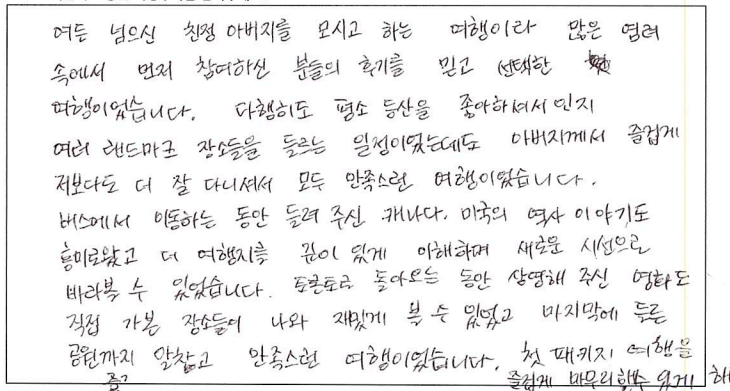 여든 넘으신 친정 아버지를 모시고 하는 여행이라 많은 염려
속에서 먼저 참여하신 분들의 후기를 믿고 선택한
여행이었습니다. 다행히도 평소 등산을 좋아하셔서인지
여러 랜드마크 장소들을 들르는 일정이었는데도 아버지께서 즐겁게
저보다도 더 잘 다니셔서 모두 만족스런 여행이었습니다.
버스에서 이동하는 동안 들려 주신 캐나다. 미국의 역사 이야기도
흥미로왔고 더 여행지를 깊이 있게 이해하며 새로운 시선으로
바라볼 수 있었습니다. 토론토로 돌아오는 동안 상영해 주신 영화도
직접 가본 장소들이 나와 재밌게 볼 수 있었고 마지막에 들른
공원까지 알찼고 만족스런 여행이었습니다. 첫 패키지 여행을
즐겁게 마무리할수 있게 해